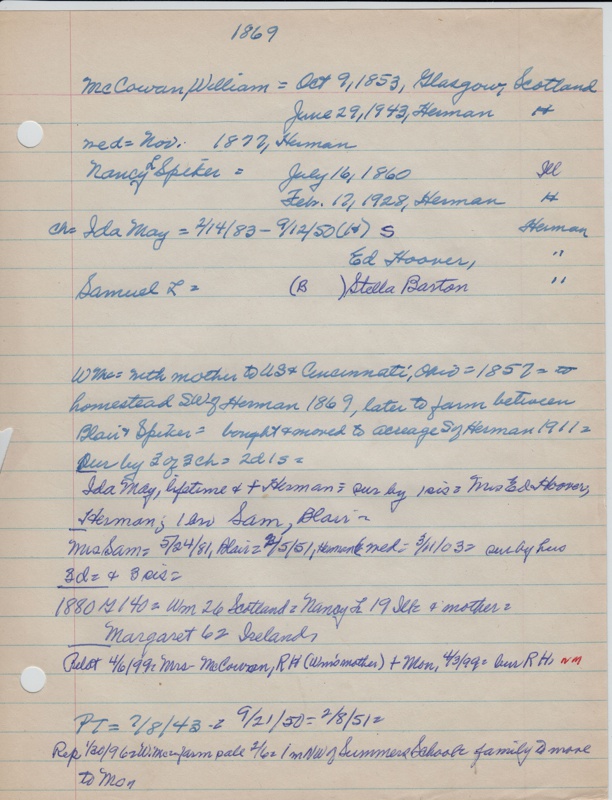 1869
McCowan, William = Oct 9, 1853, Glasgow, Scotland
June 29, 1943, Herman H
med = Nov. 1877, Herman
Nancy L Spiker = July 16, 1860 Ill
Feb. 12, 1928, Herman H
ch = Ida May = 2/14/83 - 9/12/50 (H) S Herman
Ed Hoover, "
Samuel L = (B ) Stella Barton "
W Mc = with mother to US & Cincinnati, Ohio = 1857 = to
homestead SW of Herman 1869, later to farm between
Blair & Spiker = bought & moved to acreage S of Herman 1911 =
Sur by 3 of 3 ch = 2d 1s =
Ida May, lifetime & + Herman = sur by 1 sis = Mrs Ed Hoover,
Herman; 1 bro Sam, Blair =
Mrs Sam = 5/24/81, Blair = 2/5/51, Herman & med = 3/11/03 = sur by hus
3d = & 3 sis =
1880 140 = Wm 26 Scotland = Nancy L 19 Ills & mother =
Margaret 62 Ireland,
Pilot 4/6/99 = Mrs - McCowan, R H (Wm's mother) + Mon, 4/3/99 = bur R H, NM
PT = 7/8/43 = 9/21/50 = 2/8/51 =
Rep 1/30/96 = W. Mc = farm sale 2/6 = 1 m NW of Summers School = family to move
to Mo,